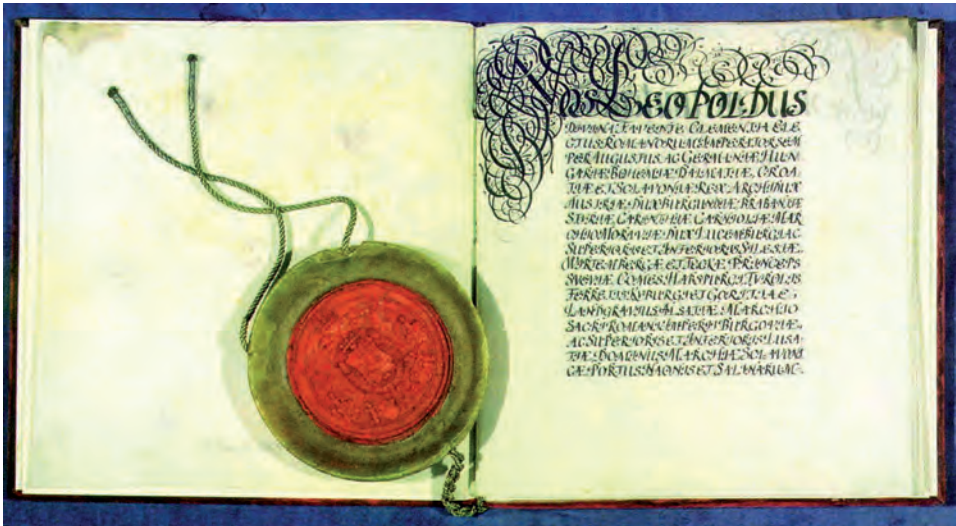 NOS LEOPOLDUS
DIVINA FAVENTE CLEMENTIA ELE
CTUS ROMANORUM IMPERATOR SEM
PER AUGUSTUS AC GERMANIÆ, HUN
GARIÆ, BOHEMIÆ, DALMATIÆ, CROA
TIÆ ET SCLAVONIÆ REX, ARCHIDUX
AUSTRIÆ, DUX BURGUNDIÆ, BRABANTIÆ
STYRIÆ, CARINTHIÆ, CARNIOLIÆ, MAR
CHIO MORAVIÆ, DUX LUCEMBURGI, AC
SUPERIORIS ET INFERIORIS SILESIÆ,
WÜRTEMBERGÆ, ET TECKÆ, PRINCEPS
SUEVIÆ, COMES HABSPURGI, TYROLIS
FERRETIS, KYBURGI ET GORITIÆ,
LANDGRAVIUS ALSATIÆ, MARCHIO
SACRI ROMANI IMPERII BURGOVIÆ,
AC SUPERIORIS ET INFERIORIS LUSA
TIÆ, DOMINUS MARCHIÆ SCLAVONI
CÆ, PORTUS NAONIS ET SALINARUM